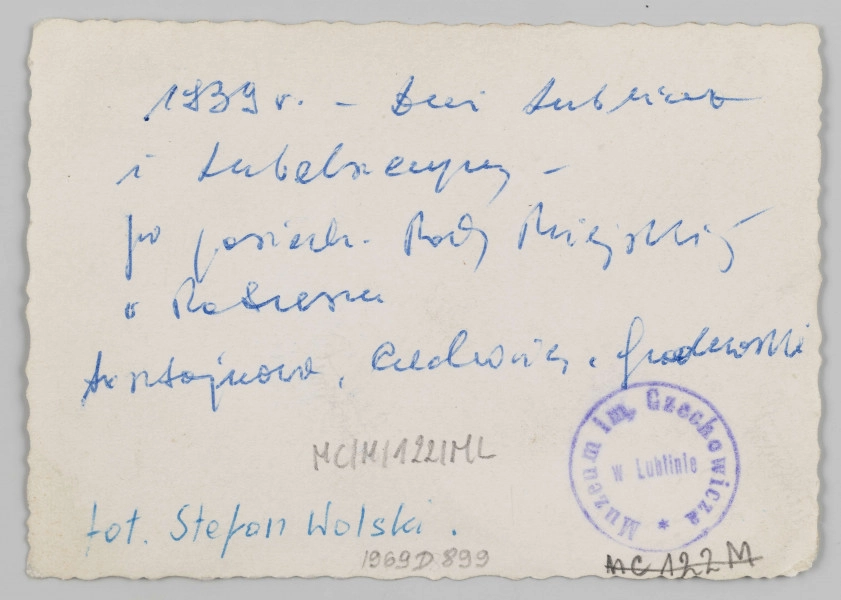 1939 r. - Dni Lublina
i Lubelszczyzny -
po posiedz. Rady Miejskiej
w Ratuszu
Czechowicz,
MC/M/122/ML
Muzeum im. Czechowicza
w Lublinie
fot. Stefan Wolski.
1969 D 899
MC 122 M